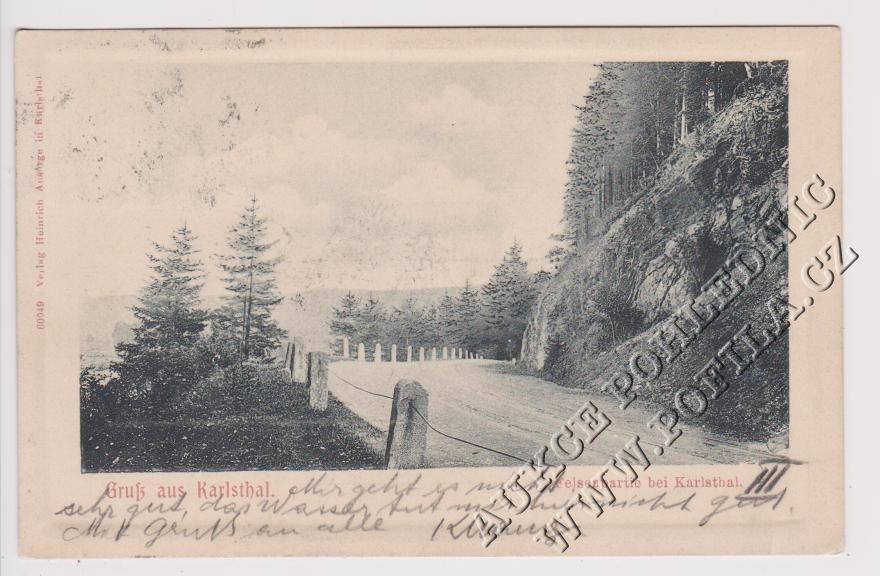 60949 Verlag Heinrich Ansorge in Karlsthal
Gruß aus Karlsthal.
Felsenpartie bei Karlsthal.
III
Mir geht es
sehr gut, das Wasser tut mir hier nicht gut.
Mit Gruß an alle
AUKCE POHLEDNIC
WWW.POFILA.CZ